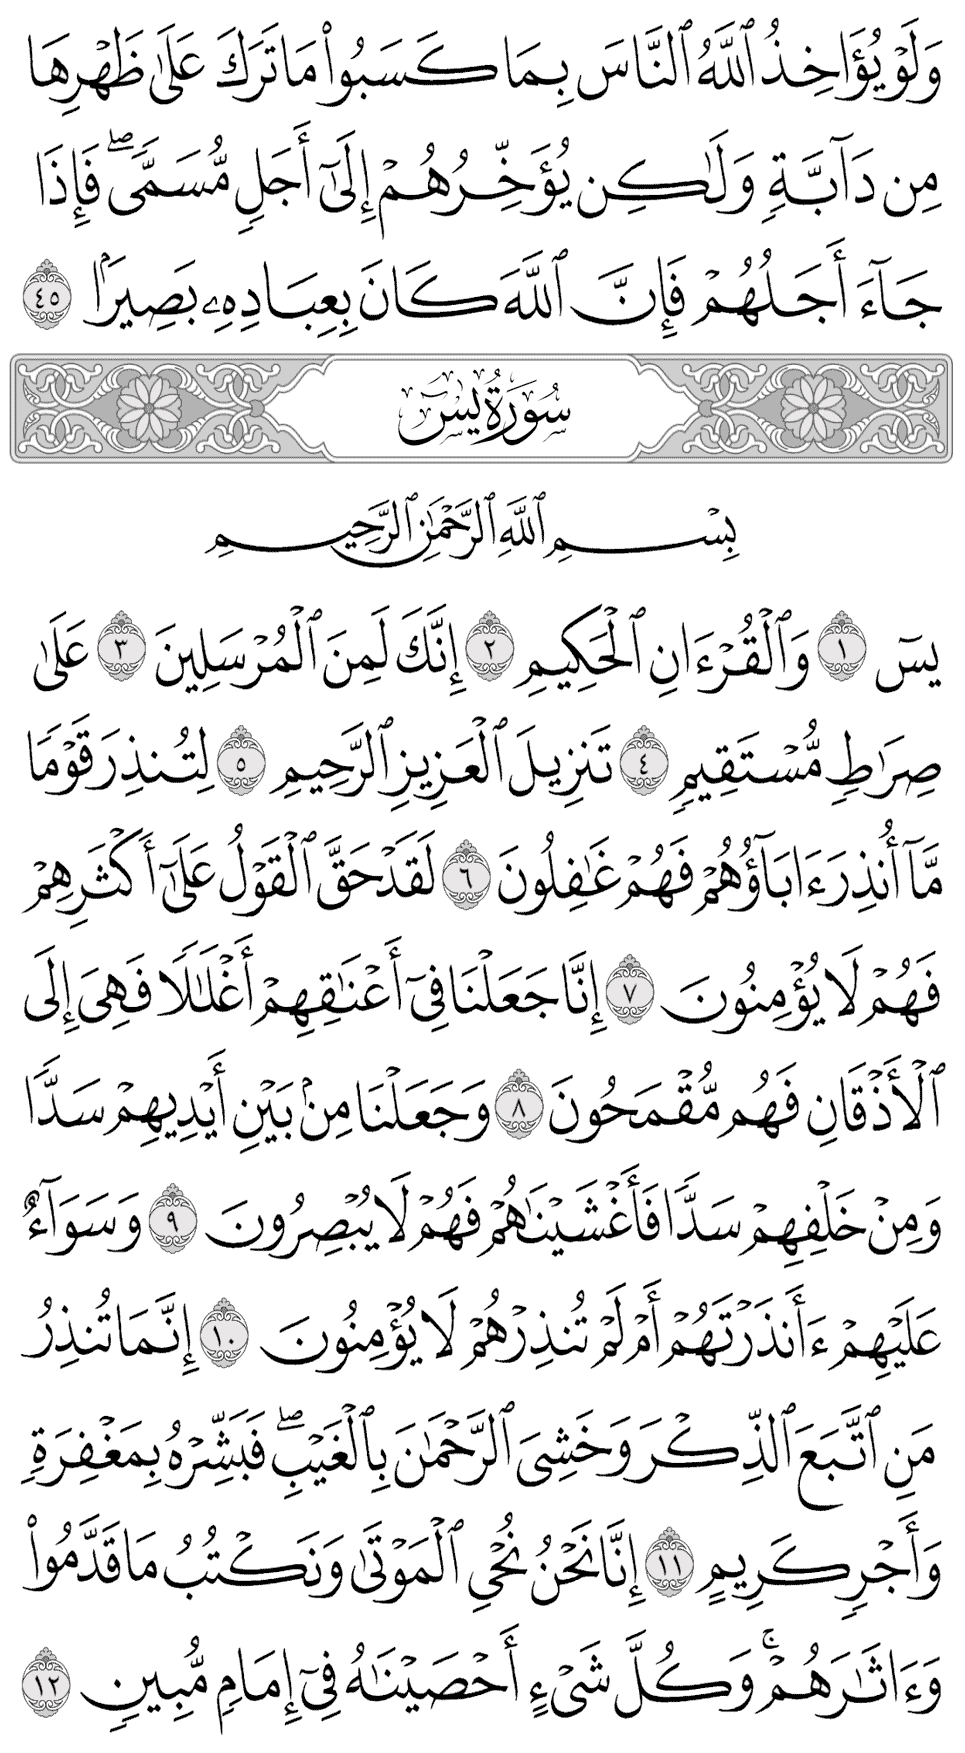 وَلَوۡ يُؤَاخِذُ ٱللَّهُ ٱلنَّاسَ بِمَا كَسَبُواْ مَا تَرَكَ عَلَىٰ ظَهۡرِهَا
مِن دَآبَّةٖ وَلَٰكِن يُؤَخِّرُهُمۡ إِلَىٰٓ أَجَلٖ مُّسَمّٗىۖ فَإِذَا
جَآءَ أَجَلُهُمۡ فَإِنَّ ٱللَّهَ كَانَ بِعِبَادِهِۦ بَصِيرَۢا ٤٥
سُورَةُ يسٓ
بِسۡمِ ٱللَّهِ ٱلرَّحۡمَٰنِ ٱلرَّحِيمِ
يسٓ ١ وَٱلۡقُرۡءَانِ ٱلۡحَكِيمِ ٢ إِنَّكَ لَمِنَ ٱلۡمُرۡسَلِينَ ٣ عَلَىٰ
صِرَٰطٖ مُّسۡتَقِيمٖ ٤ تَنزِيلَ ٱلۡعَزِيزِ ٱلرَّحِيمِ ٥ لِتُنذِرَ قَوۡمٗا
مَّآ أُنذِرَ ءَابَآؤُهُمۡ فَهُمۡ غَٰفِلُونَ ٦ لَقَدۡ حَقَّ ٱلۡقَوۡلُ عَلَىٰٓ أَكۡثَرِهِمۡ
فَهُمۡ لَا يُؤۡمِنُونَ ٧ إِنَّا جَعَلۡنَا فِيٓ أَعۡنَٰقِهِمۡ أَغۡلَٰلٗا فَهِيَ إِلَى
ٱلۡأَذۡقَانِ فَهُم مُّقۡمَحُونَ ٨ وَجَعَلۡنَا مِنۢ بَيۡنِ أَيۡدِيهِمۡ سَدّٗا
وَمِنۡ خَلۡفِهِمۡ سَدّٗا فَأَغۡشَيۡنَٰهُمۡ فَهُمۡ لَا يُبۡصِرُونَ ٩ وَسَوَآءٌ
عَلَيۡهِمۡ ءَأَنذَرۡتَهُمۡ أَمۡ لَمۡ تُنذِرۡهُمۡ لَا يُؤۡمِنُونَ ١٠ إِنَّمَا تُنذِرُ
مَنِ ٱتَّبَعَ ٱلذِّكۡرَ وَخَشِيَ ٱلرَّحۡمَٰنَ بِٱلۡغَيۡبِۖ فَبَشِّرۡهُ بِمَغۡفِرَةٖ
وَأَجۡرٖ كَرِيمٍ ١١ إِنَّا نَحۡنُ نُحۡيِ ٱلۡمَوۡتَىٰ وَنَكۡتُبُ مَا قَدَّمُواْ
وَءَاثَٰرَهُمۡۚ وَكُلَّ شَيۡءٍ أَحۡصَيۡنَٰهُ فِيٓ إِمَامٖ مُّبِينٖ ١٢